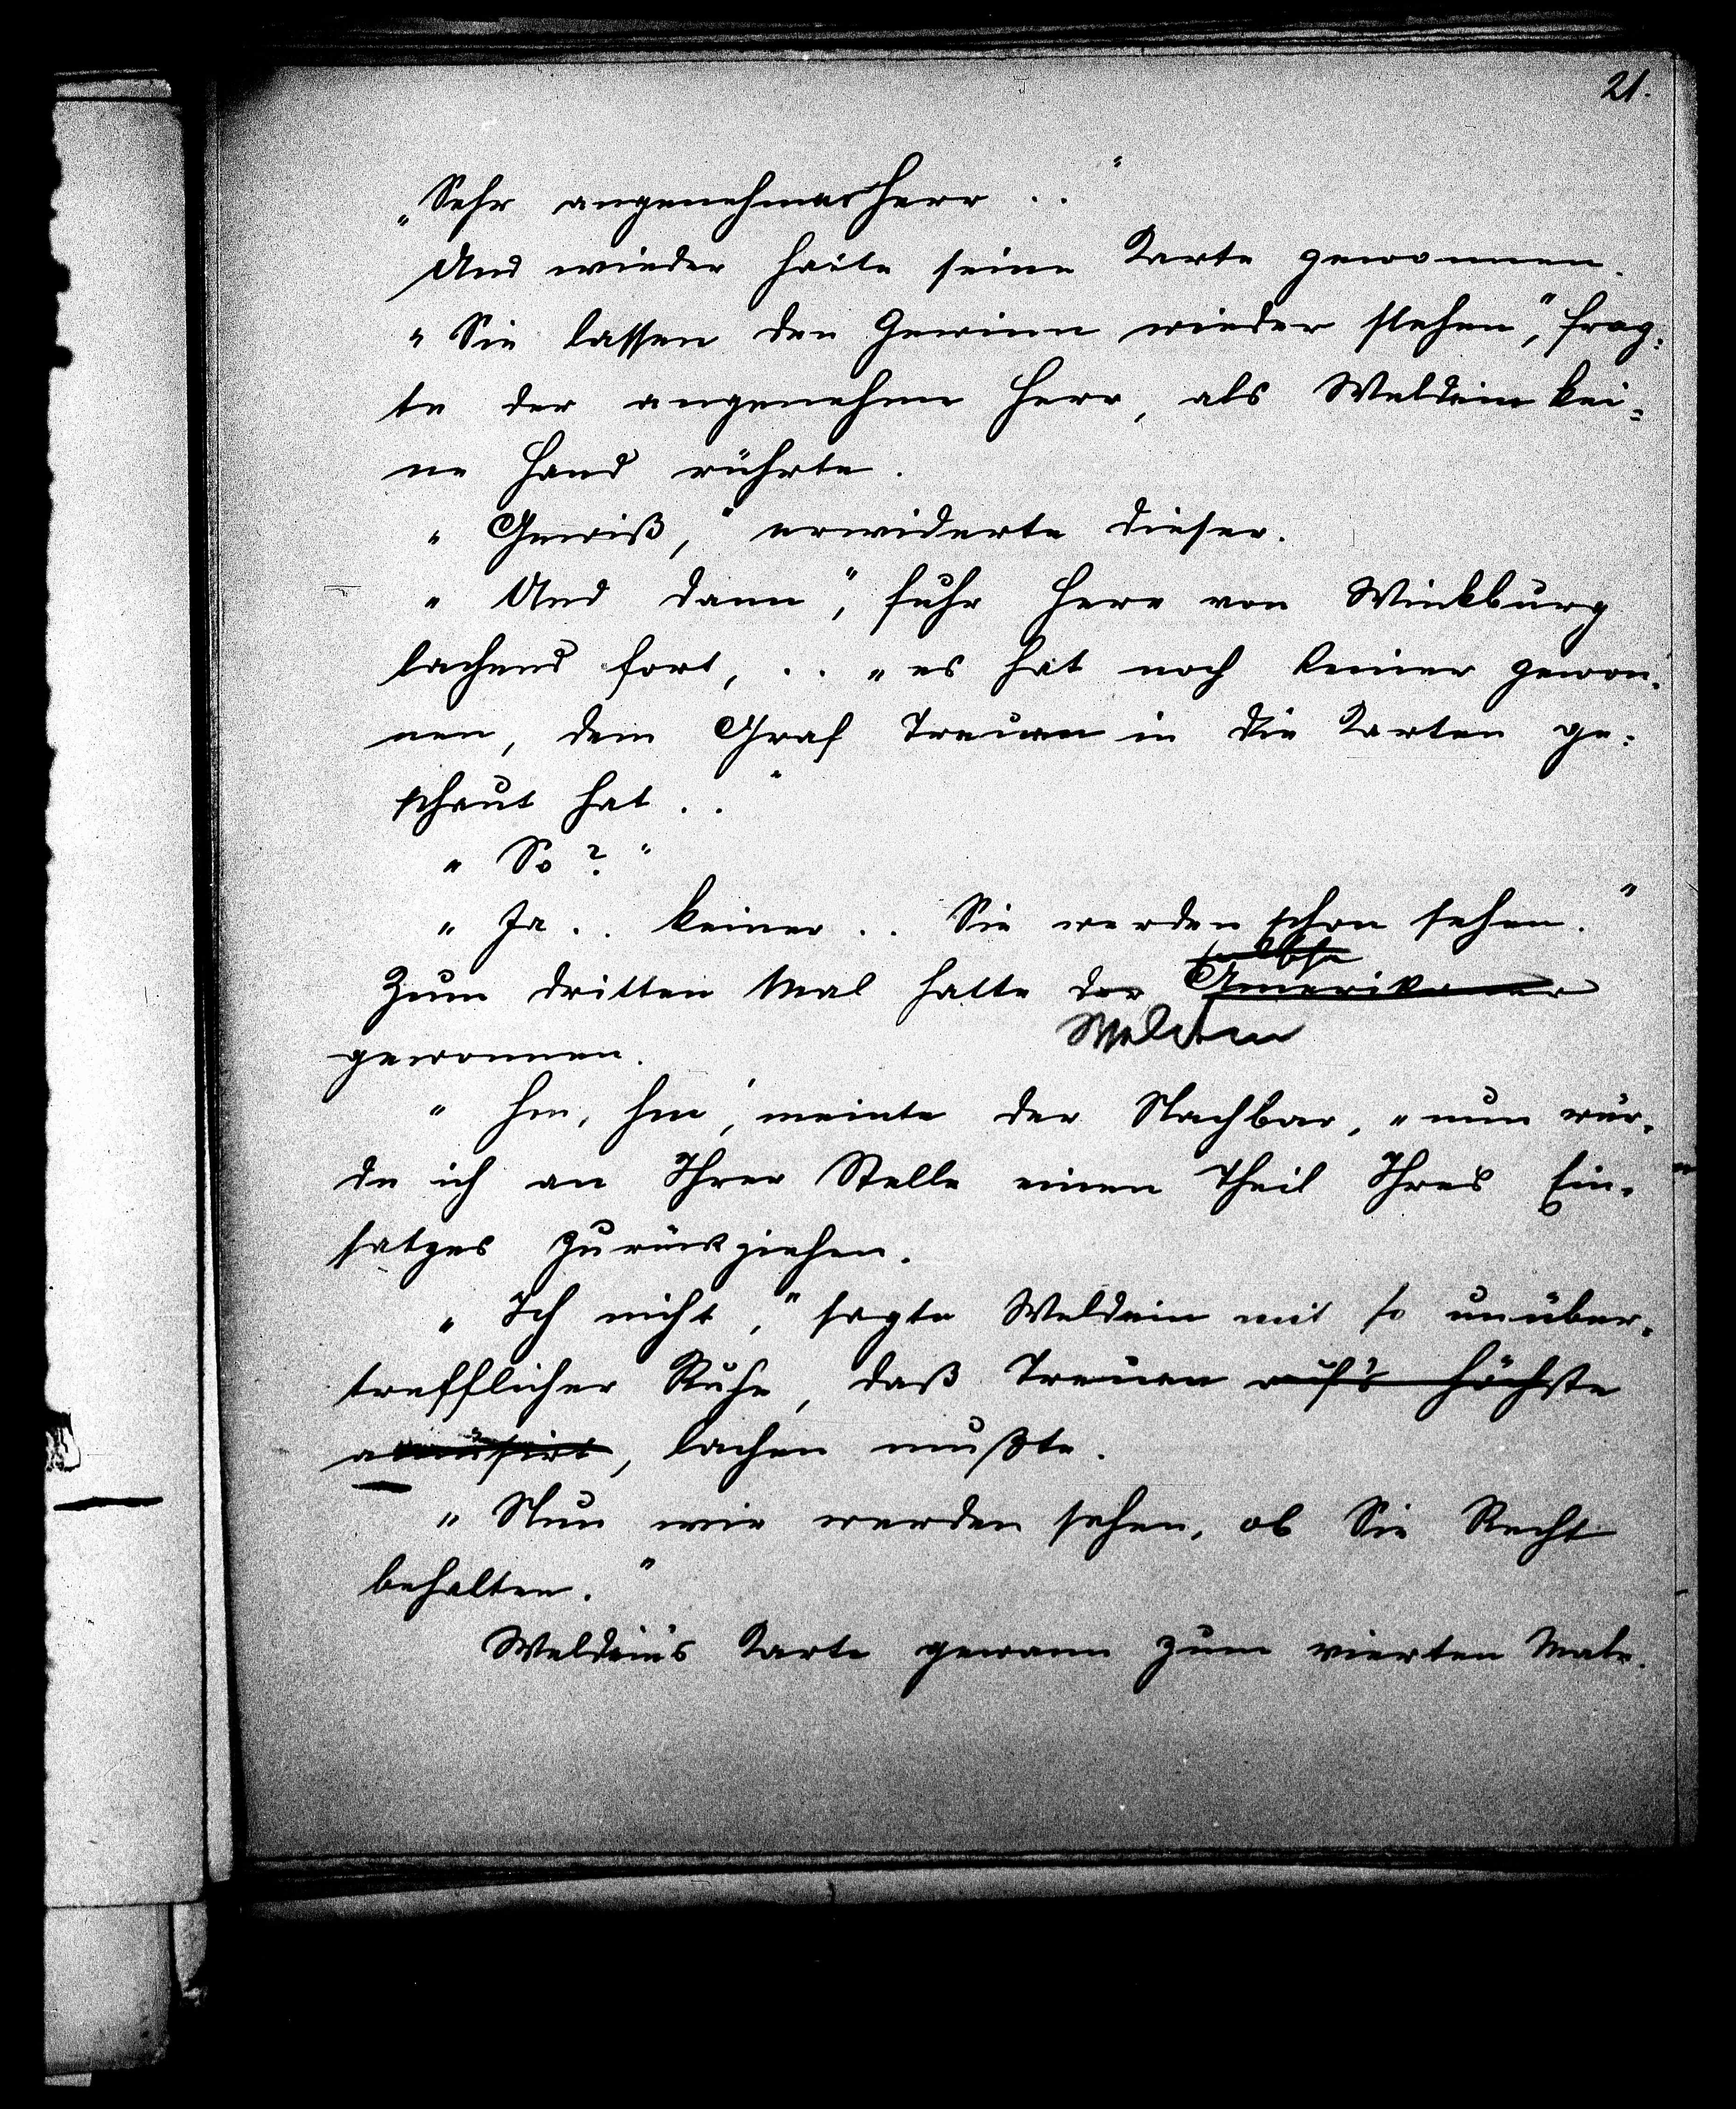 21.
„Sehr angenehmer Herr . . "
Und wieder hatte seine Karte gewonnen.
„Sie lassen den Gewinn wieder stehen", frag-
te der angenehme Herr, als Weldein kei-
ne Hand rührte.
„Gewiß," erwiderte dieser.
„Und dann", fuhr Herr von Winkburg
lachend fort, . . „es hat noch keiner gewon-
nen, dem Graf Treuen in die Karten ge-
schaut hat . . "
„So?"
„Ja . . keiner . . Sie werden schon sehen."
selbe
Zum dritten Mal hatte der Amerikaner
Weldein
gewonnen.
„Hm, hm", meinte der Nachbar, „nun wür-
de ich an Ihrer Stelle einen Theil Ihres Ein-
satzes zurückziehen.
„Ich nicht," sagte Weldein mit so unüber-
trefflicher Ruhe, daß Treuen auf's höchste
amüsirt, lachen mußte.
„Nun wir werden sehen, ob Sie Recht
behalten."
Weldein's Karte gewann zum vierten Male.